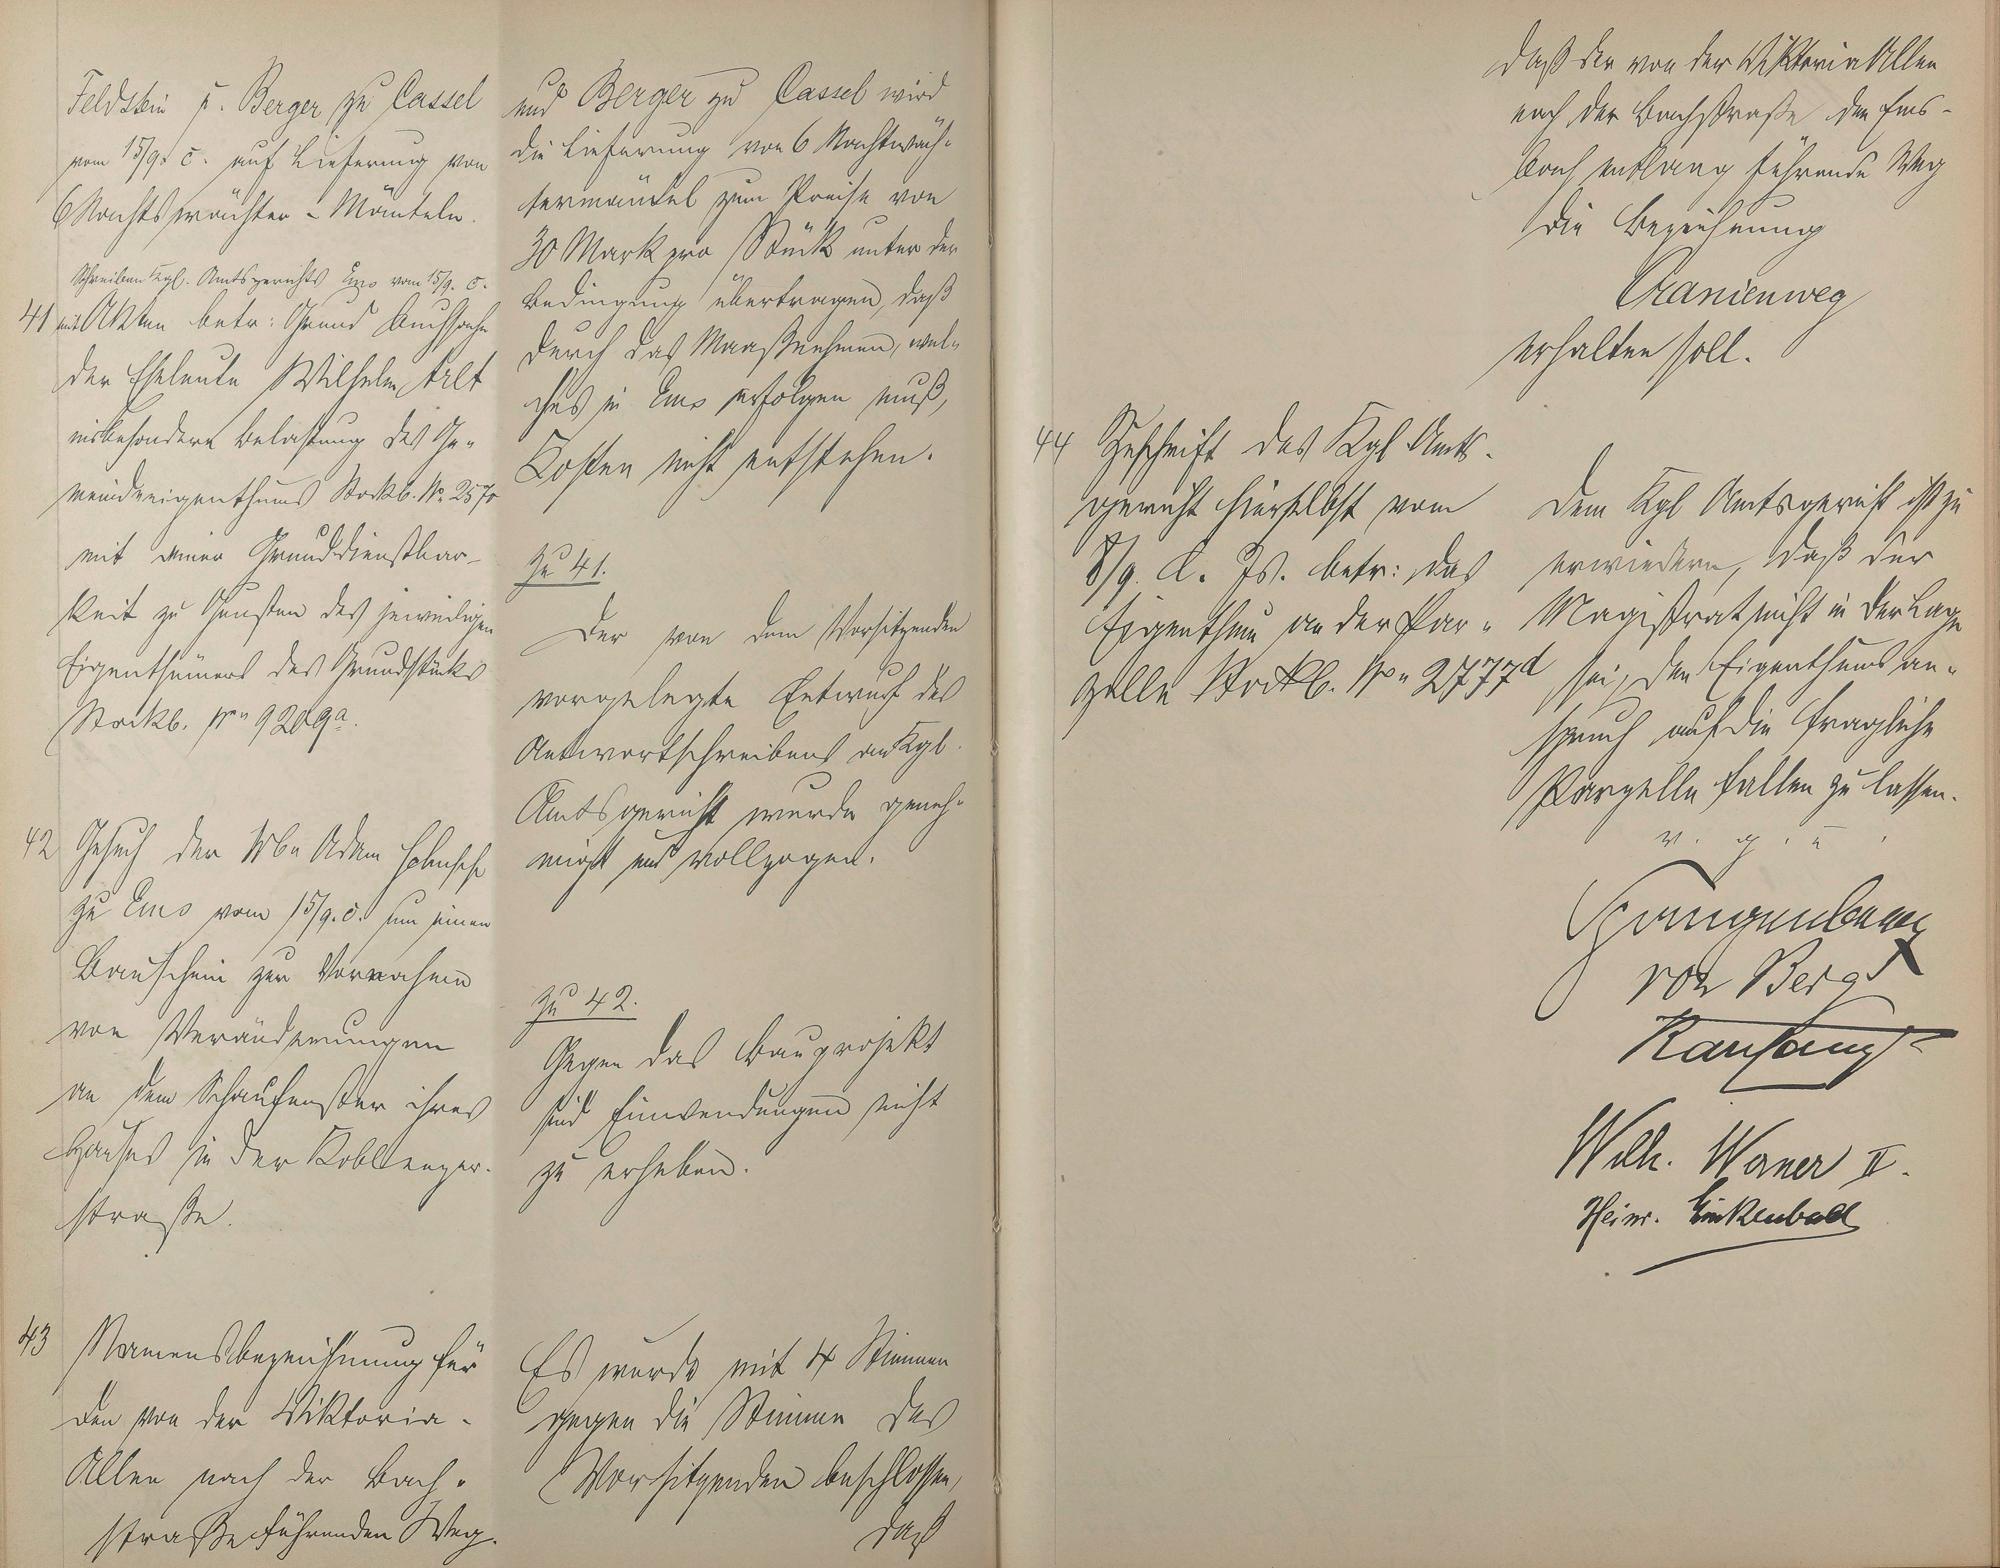 Feldstein u. Berger zu Cassel
vom 15/9. c. auf Lieferung von
6 Nachtswächter-Mänteln.
Schreiben Kgl. Amtsgerichts Ems vom 15/9. c.
41 mit Akten betr: Grundbuchsache
der Eheleute Wilhelm Alt
insbesondere Belastung des Ge-
meindeeigenthums Stockb. No 2570
mit einer Grunddienstbar-
keit zu Gunsten des jeweiligen
Eigenthümers des Grundstücks
Stockb. No 9209a.
42 Gesuch der Wwe Adam
zu Ems vom 15/9. c. um einen
Bauschein zur Vornahme
von Veränderungen
an dem Schaufenster ihres
Hauses in der Koblenzer-
straße.
43 Namensbezeichnung für
den von der Viktoria-
Allee nach der Bach-
straße führenden Weg.
und Berger zu Cassel wird
die Lieferung von 6 Nachtwäch-
termäntel zum Preise von
30 Mark pro Stück unter der
Bedingung übertragen, daß
durch das Maaßnehmen, wel-
ches in Ems erfolgen muß,
Kosten nicht entstehen.
Zu 41.
Der von dem Vorsitzenden
vorgelegte Entwurf des
Antwortschreibens an Kgl.
Amtsgericht wurde geneh-
migt und vollzogen.
Zu 42.
Gegen das Bauprojekt
sind Einwendungen nicht
zu erheben.
Es wurde mit 4 Stimmen
gegen die Stimme des
Vorsitzenden beschlossen,
daß
daß der von der Viktoria Allee
nach der Bachstraße den Ems-
bach entlang führende Weg
die Bezeichnung
Oranienweg
erhalten soll.
44 Zuschrift des Kgl Amts-
gericht hierselbst vom
8/9. d. Js. betr: das
Eigenthum an der Par-
zelle Stockb. No 2777d
Dem Kgl Amtsgericht ist zu
erwiedern, daß der
Magistrat nicht in der Lage
sei, den Eigenthumsan-
spruch auf die fragliche
Parzelle fallen zu lassen.
v. g. u.
Spangenberg
von Berg
Wilh. Werner II.
Heinr. Linkenbach